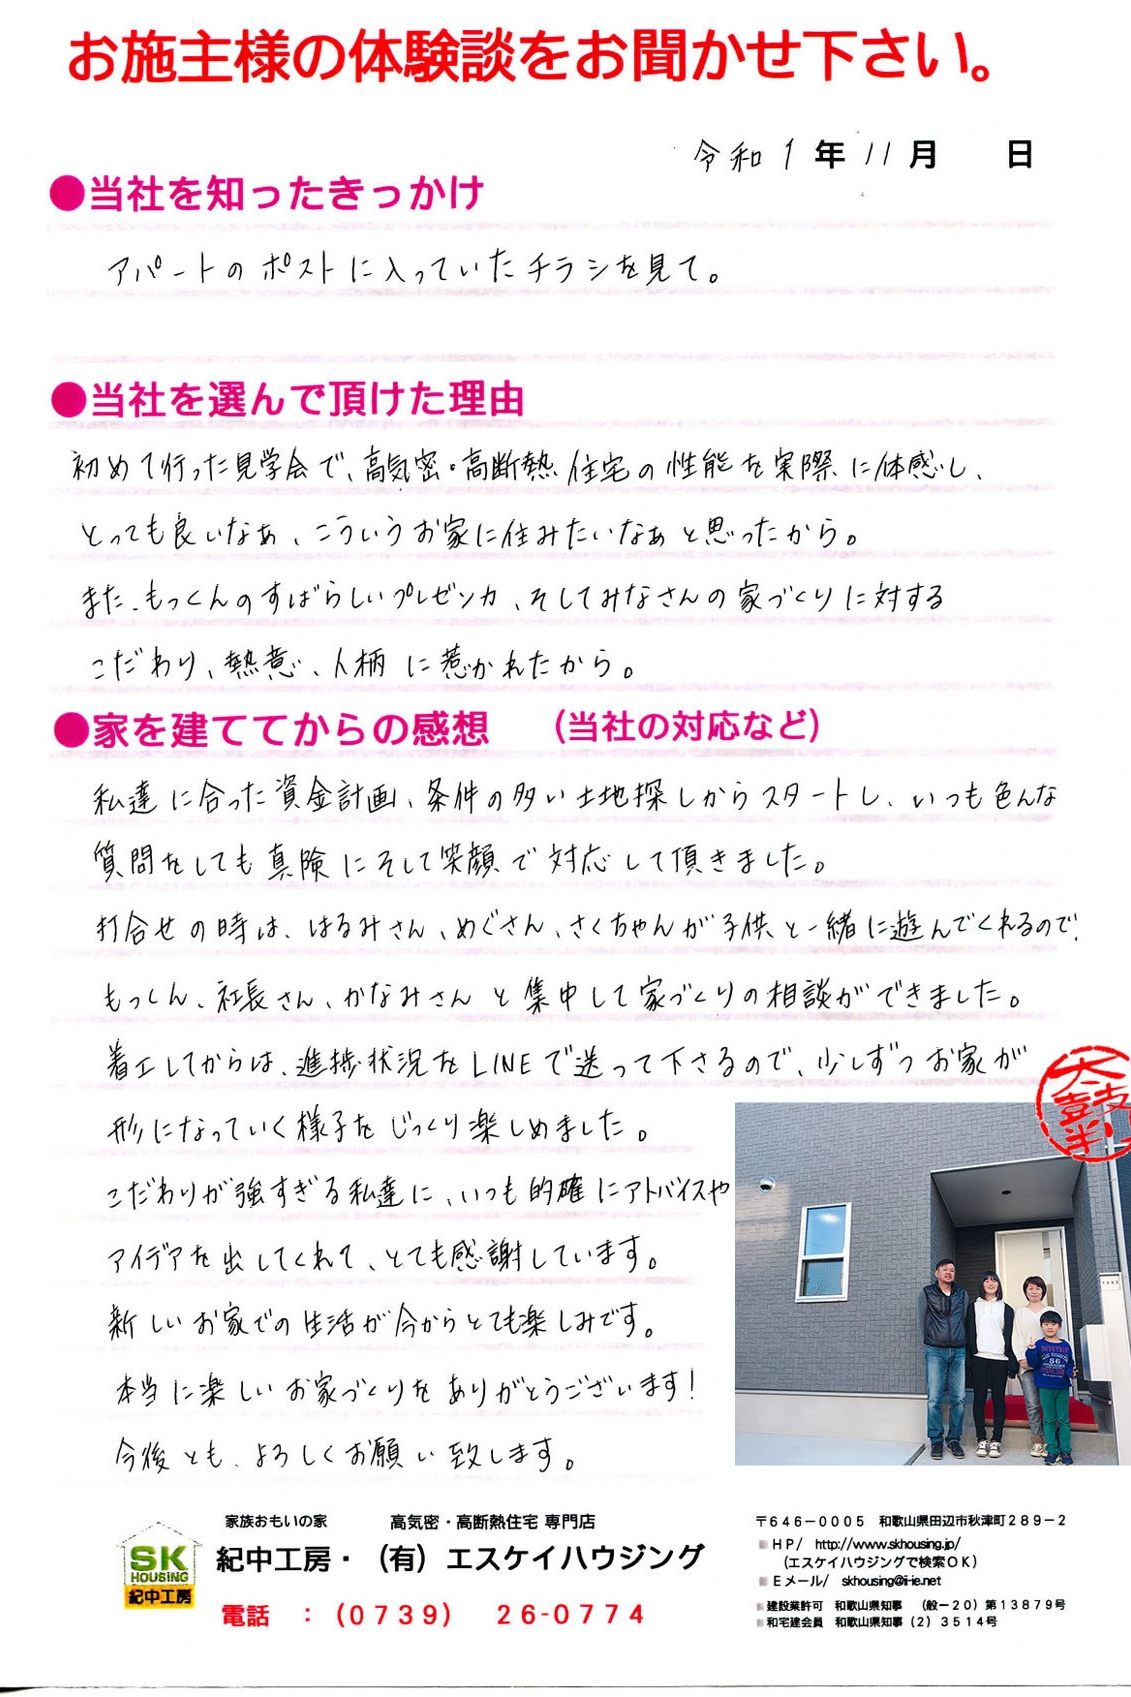 お施主様の体験談をお聞かせ下さい。
令和1年11月 日
●当社を知ったきっかけ
アパートのポストに入っていたチラシを見て。
●当社を選んで頂けた理由
初めて行った見学会で、高気密・高断熱住宅の性能を実際に体感し、
とっても良いなぁ、こういうお家に住みたいなぁと思ったから。
また、もっくんのすばらしいプレゼン力、そしてみなさんの家づくりに対する
こだわり、熱意、人柄に惹かれたから。
●家を建ててからの感想 (当社の対応など)
私達に合った資金計画、条件の多い土地探しからスタートし、いつも色んな
質問をしても真険にそして笑顔で対応して頂きました。
打合せの時は、はるみさん、めぐさん、さくちゃんが子供と一緒に遊んでくれるので、
もっくん、社長さん、かなみさんと集中して家づくりの相談ができました。
着工してからは、進捗状況をLINEで送って下さるので、少しずつお家が
形になっていく様子をじっくり楽しめました。
こだわりが強すぎる私達に、いつも的確にアドバイスや
アイデアを出してくれて、とても感謝しています。
新しいお家での生活が今からとても楽しみです。
本当に楽しいお家づくりをありがとうございます!
今後とも、よろしくお願い致します。
太鼓判
56
家族おもいの家 高気密・高断熱住宅 専門店
SK
HOUSING
紀中工房
紀中工房・(有)エスケイハウジング
電話 : (0739) 26-0774
〒646-0005 和歌山県田辺市秋津町289-2
HP/ http://www.skhousing.jp/
(エスケイハウジングで検索OK)
Eメール/ skhousing@i-ie.net
建設業許可 和歌山県知事 (般-20)第13879号
和宅建会員 和歌山県知事(2)3514号